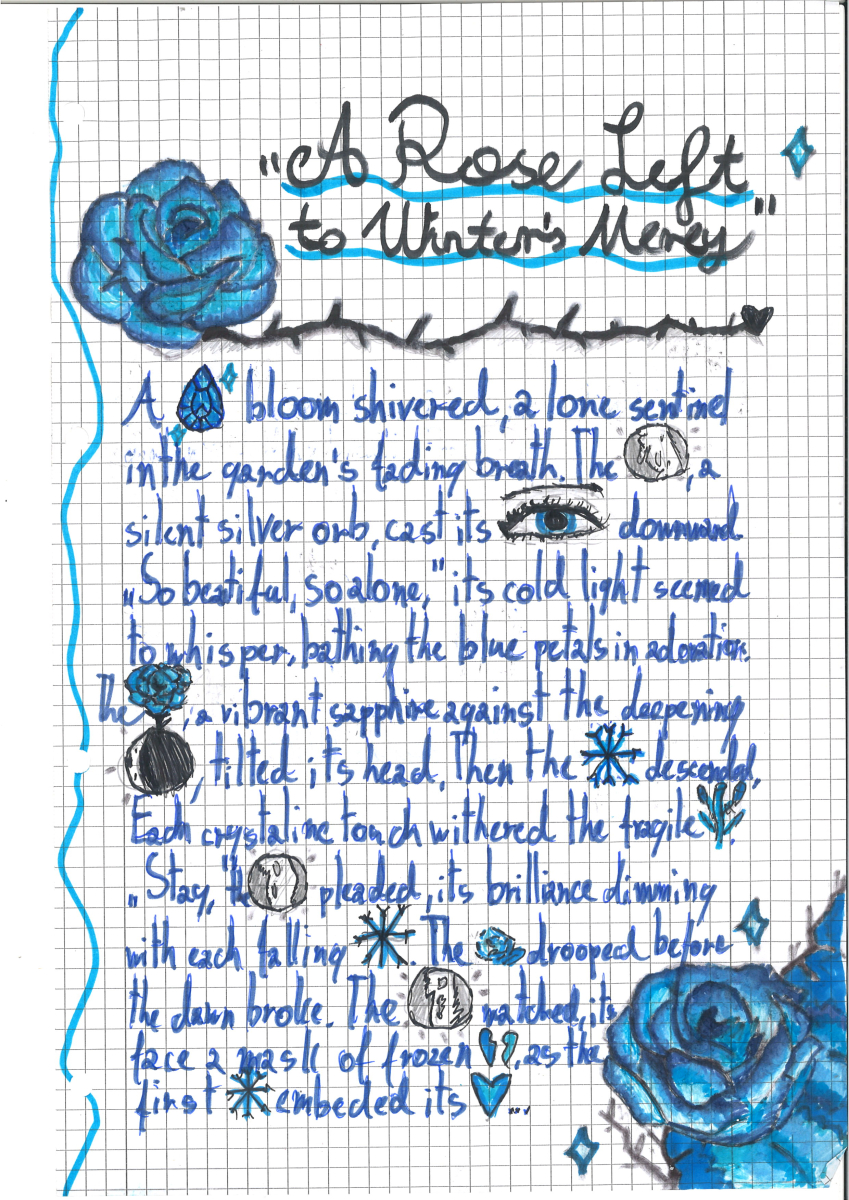 "A Rose Left
to Winter's Mercy"
A bloom shivered, a lone sentinel
in the garden's fading breath. The , a
silent silver orb, cast its downward.
„So beatiful, so alone," its cold light seemed
to whisper, bathing the blue petals in adoration.
The , a vibrant sapphire against the deepening
, tilted its head. Then the descended.
Each crystaline touch withered the fragile .
„Stay," the pleaded, its brilliance dimming
with each falling . The drooped before
the dawn broke. The watched, its
face a mask of frozen , as the
first embeded its ...